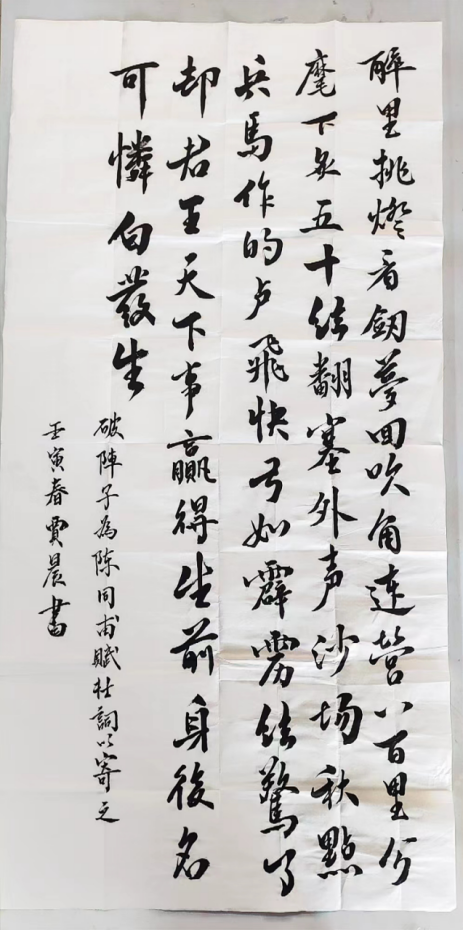 醉里挑燈看劔夢回吹角連營八百里分
麾下炙五十弦翻塞外声沙场秋點
兵馬作的卢飛快弓如霹雳弦驚了
却君王天下事贏得生前身後名
可憐白發生
破陣子為陈同甫賦壮詞以寄之
壬寅春賈晨書